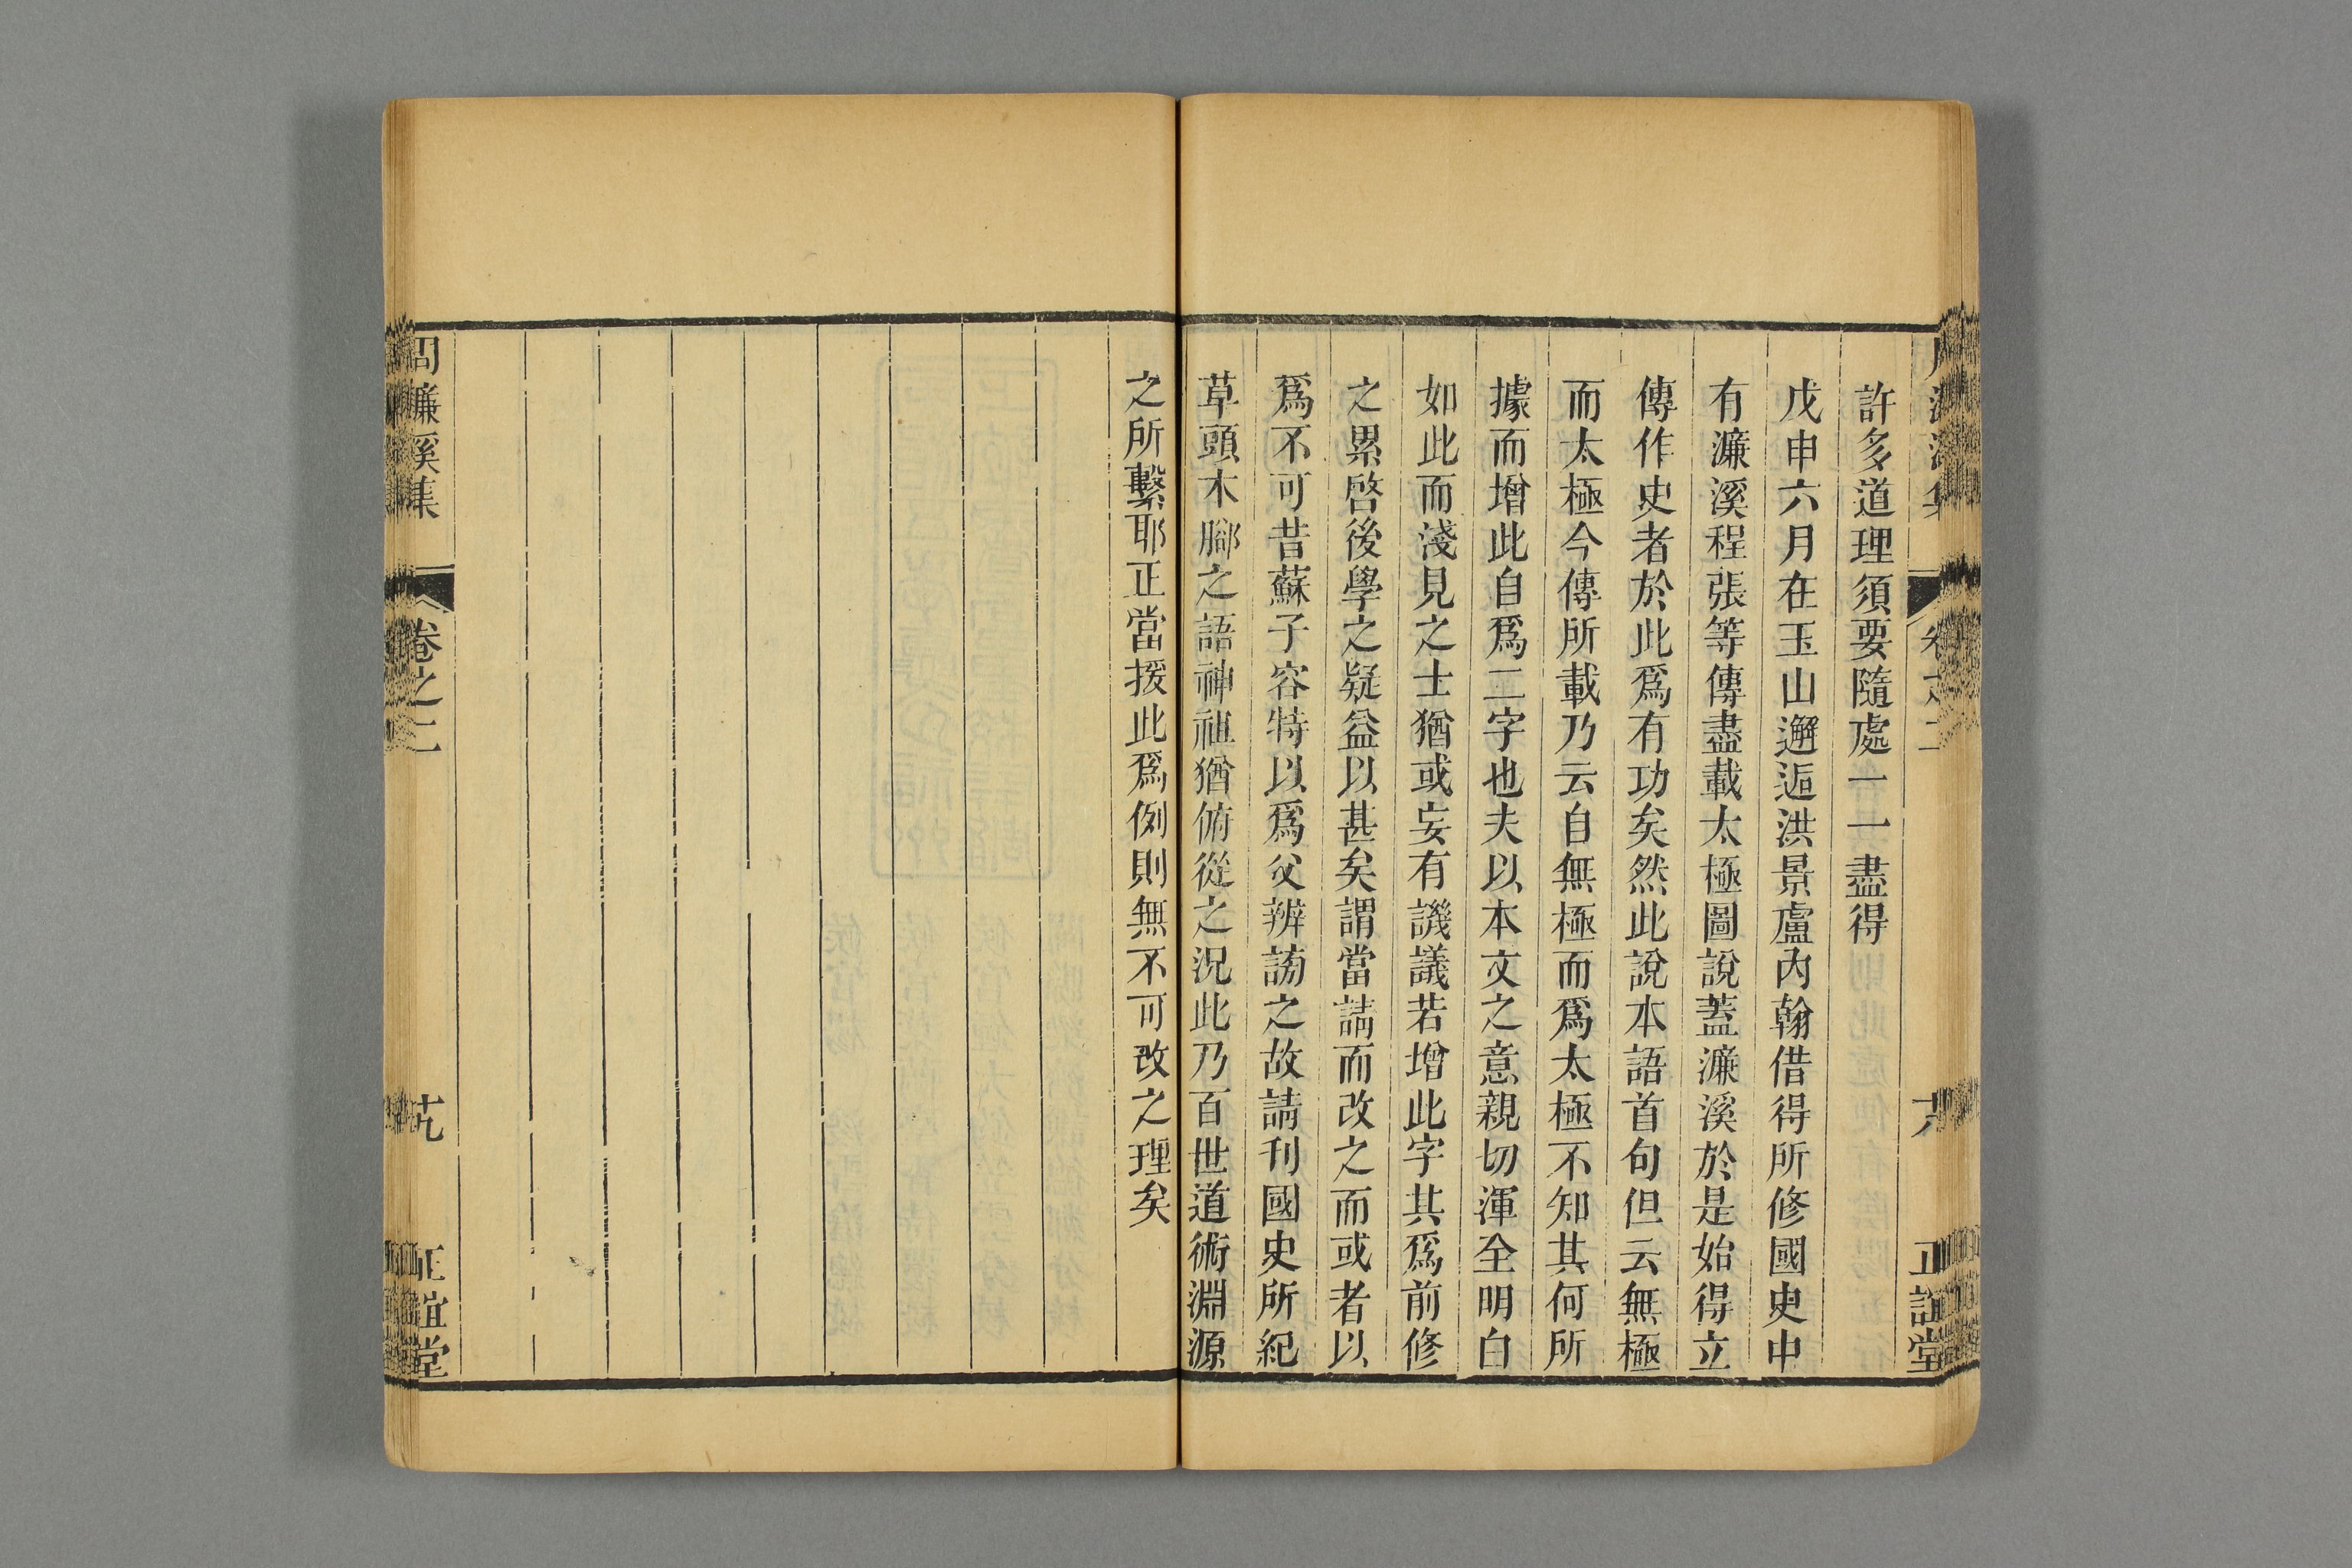 許多道理須要隨處一一盡得
戊申六月在玉山邂逅洪景盧內翰借得所修國史中
有濂溪程張等傳盡載太極圖說蓋濂溪於是始得立
傳作史者於此爲有功矣然此說本語首句但云無極
而太極今傳所載乃云自無極而爲太極不知其何所
據而增此自爲二字也夫以本文之意親切渾全明白
如此而淺見之士猶或妄有譏議若增此字其爲前修
之累啓後學之疑益以甚矣謂當請而改之而或者以
爲不可昔蘇子容特以爲父辨謗之故請刊國史所紀
草頭木腳之語神祖猶俯從之況此乃百世道術淵源
之所繫耶正當援此爲例則無不可改之理矣
周濂溪集
卷之二
正誼堂